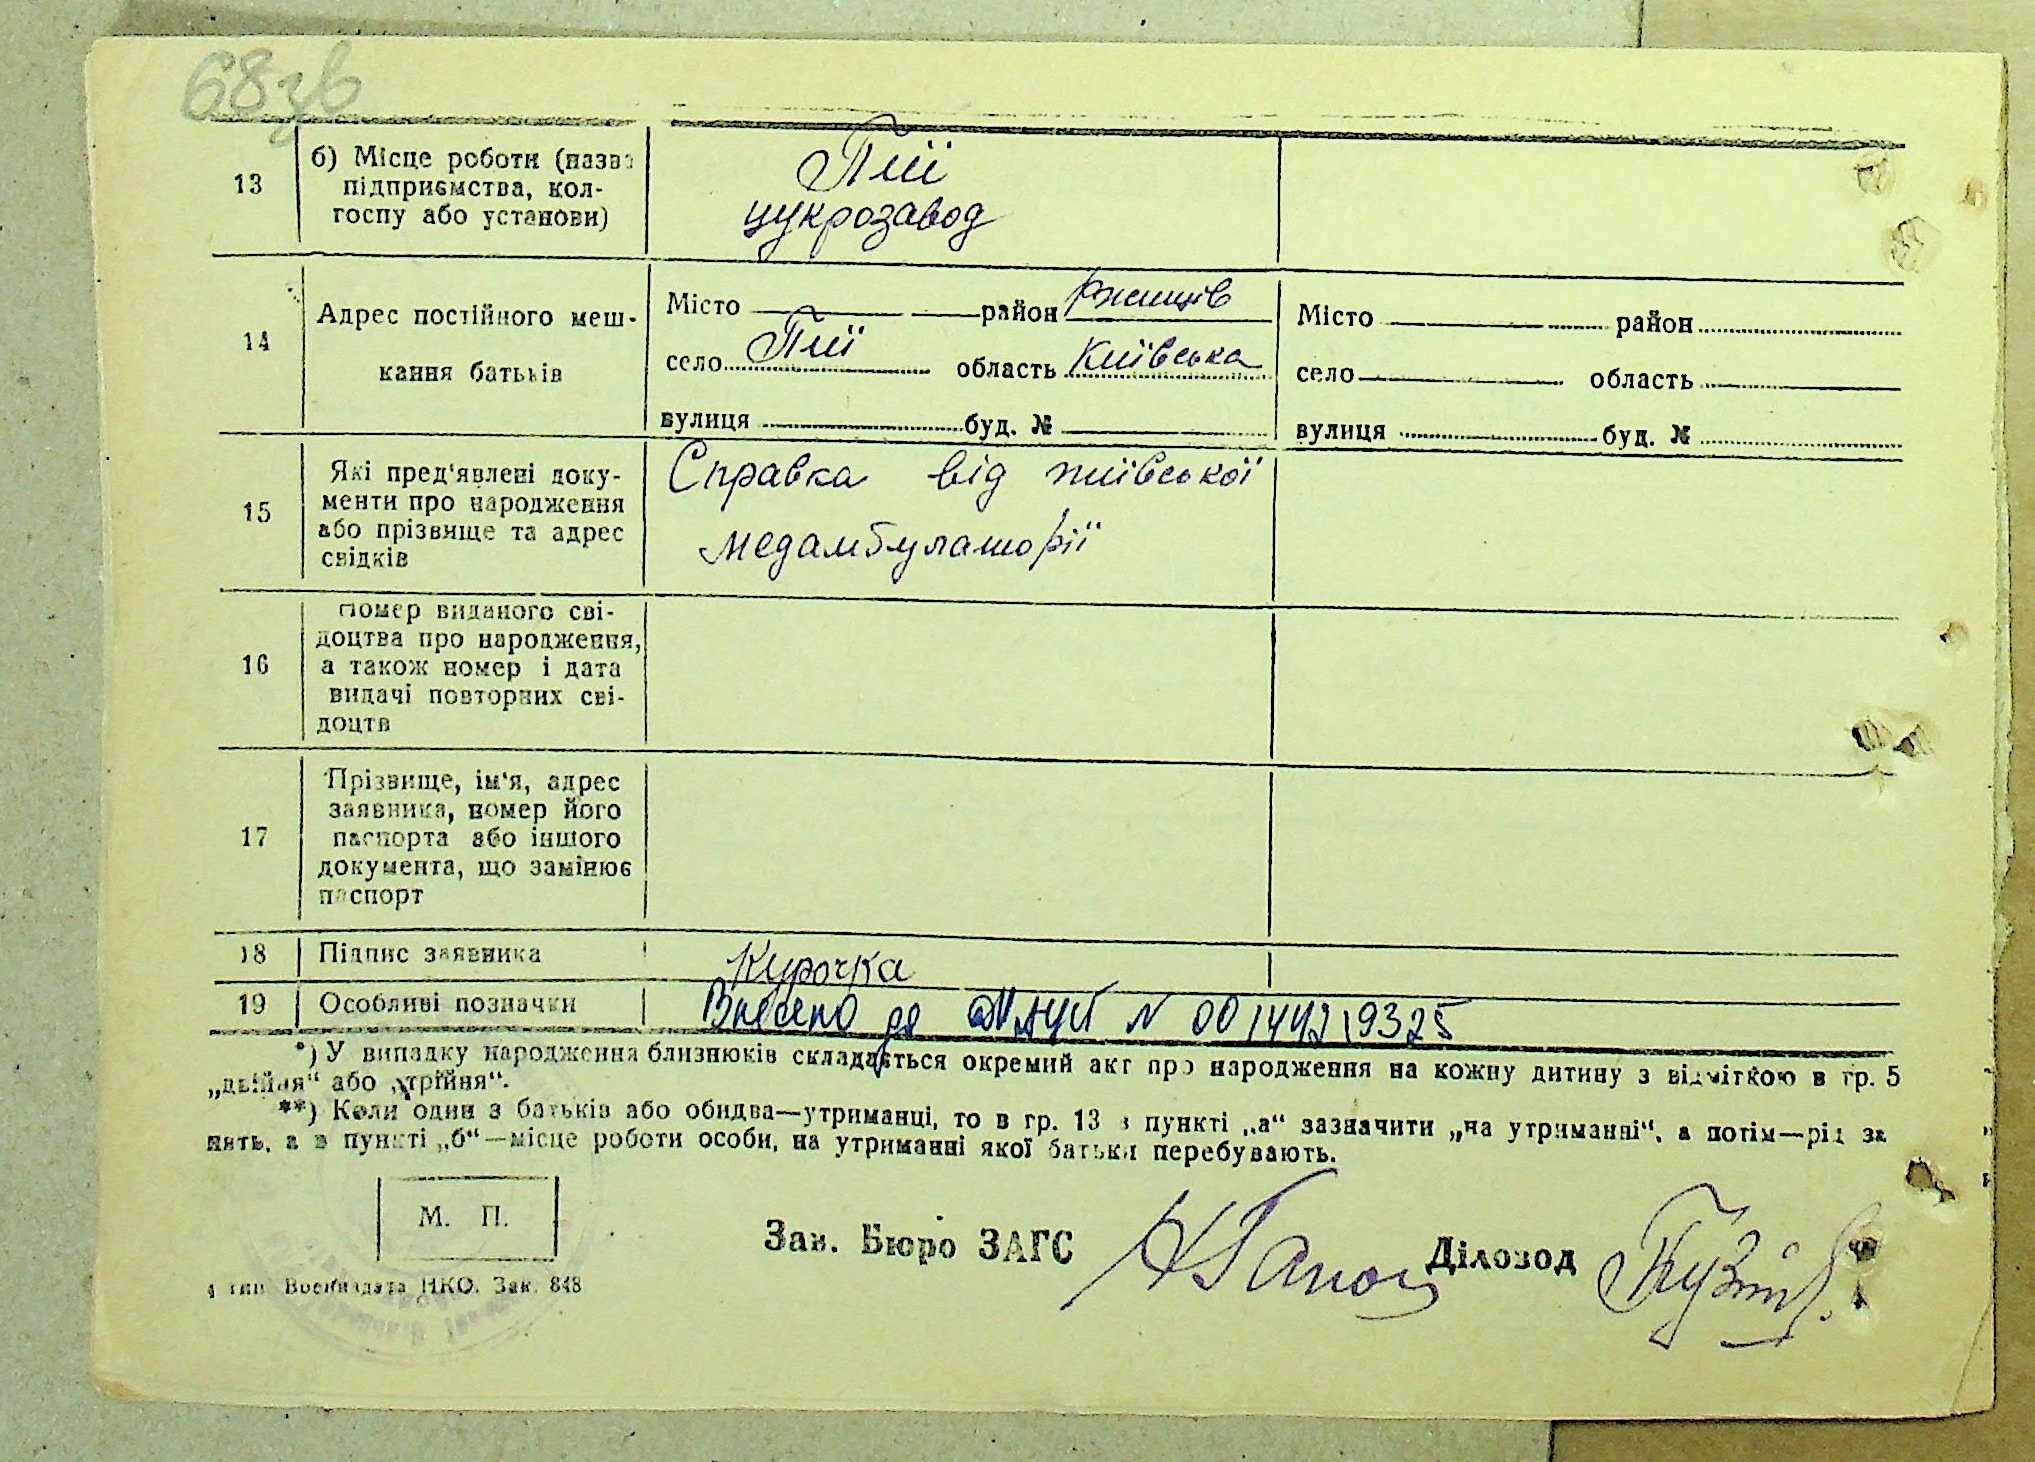 68зв
13
б) Місце роботи (назва
підприємства, кол-
госпу або установи)
Пії
цукрозавод
14
Адрес постійного меш-
кання батьків
Місто район Ржищів
село Пії область Київська
вулиця буд. №
Місто район
село область
вулиця буд. №
15
Які пред'явлені доку-
менти про народження
або прізвище та адрес
свідків
Справка від піївської
медамбулаторії
16
Номер виданого сві-
доцтва про народження,
а також номер і дата
видачі повторних сві-
доцтв
17
Прізвище, ім'я, адрес
заявника, номер його
паспорта або іншого
документа, що замінює
паспорт
18
Підпис заявника
Курочка
19
Особливі позначки
Внесено до N 00144219325
*) У випадку народження близнюків складається окремий акт про народження на кожну дитину з відміткою в гр. 5
„двійня“ або „трійня“.
**) Коли один з батьків або обидва—утриманці, то в гр. 13 в пункті „а“ зазначити „на утриманні“, а потім—рід за
нять, а в пункті „б“—місце роботи особи, на утриманні якої батьки перебувають.
М. П.
Зав. Бюро ЗАГС
Діловод
4 тип. Воениздата НКО. Зак. 848